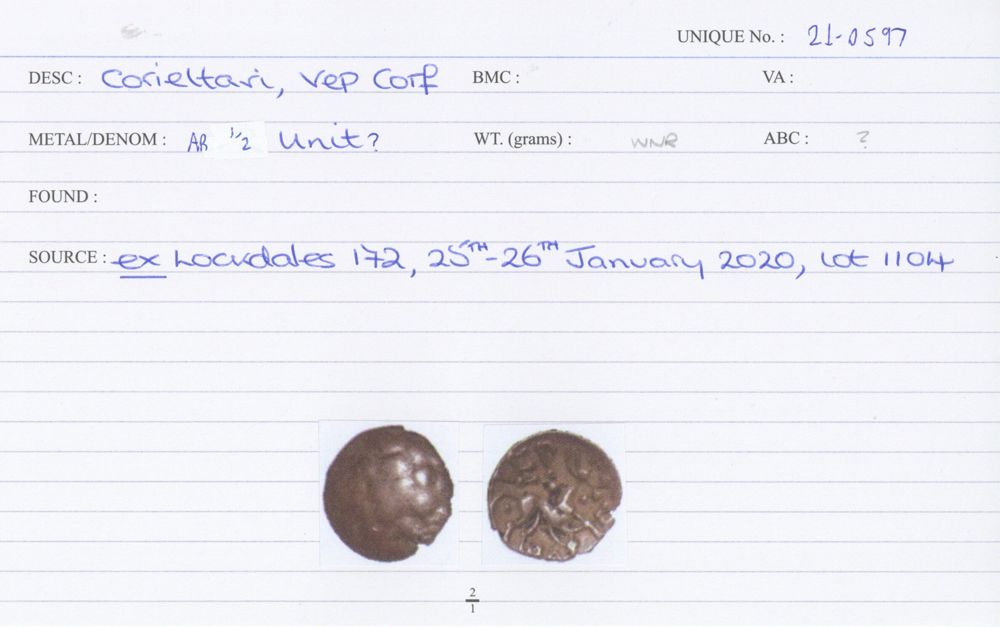 UNIQUE No. : 21-0597
DESC : Corieltavi, Vep Corf BMC : VA :
METAL/DENOM : AR 1/2 Unit? WT. (grams) : WNR ABC : ?
FOUND :
SOURCE : ex Lockdales 172, 25TH-26TH January 2020, Lot 1104
2
1